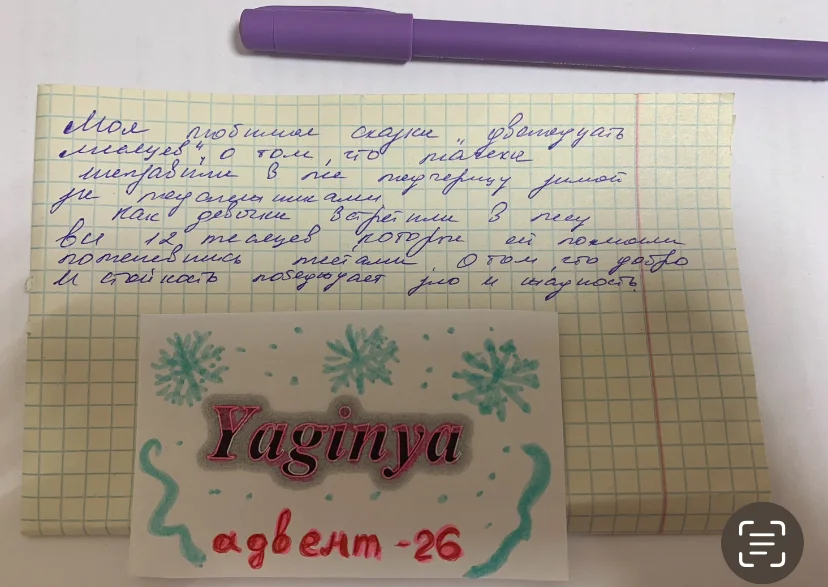 Моя любимая сказки "двенадцать
месяцев", о том, что мачеха
отправили в лес падчерицу зимой
за подснежниками.
Как девочки встретили в лесу
все 12 месяцев которые ей помогли
поменявшись местами. О том, что добро
и стойкость побеждает зло и жадность.
Yaginya
адвент-26